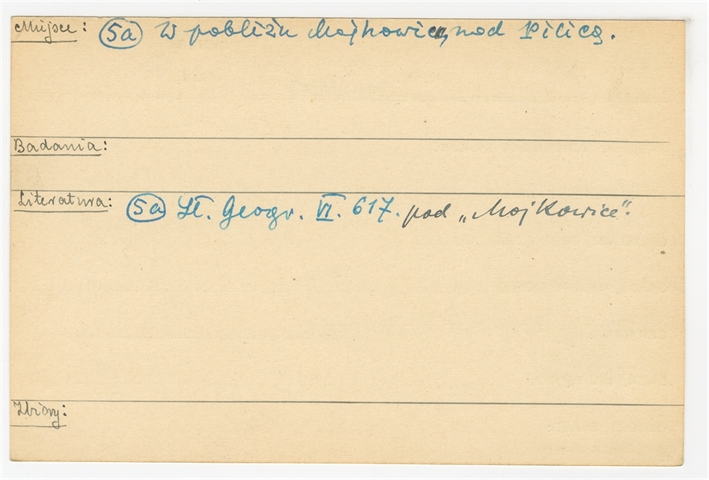 Miejsce: (5a) W pobliżu Majkowic, nad Pilicą.
Badania:
Literatura: (5a) Sł. Geogr. VI. 617. pod „Majkowice".
Zbiory: